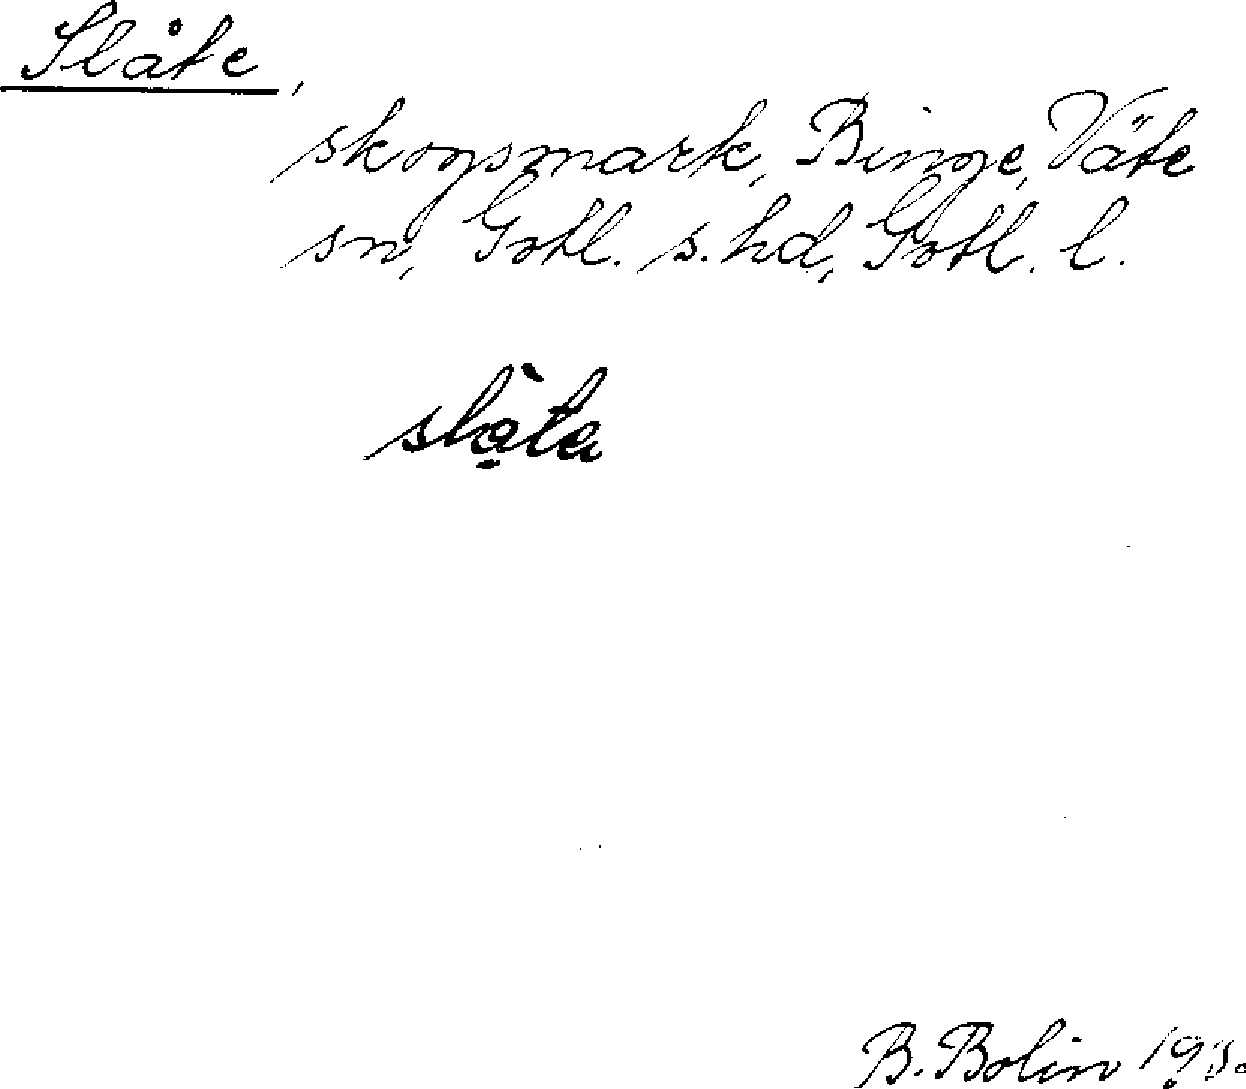 Slåte,
skogsmark, Binge, Väte
sn, Gotl. s. hd, Gotl. l.
B. Bolin